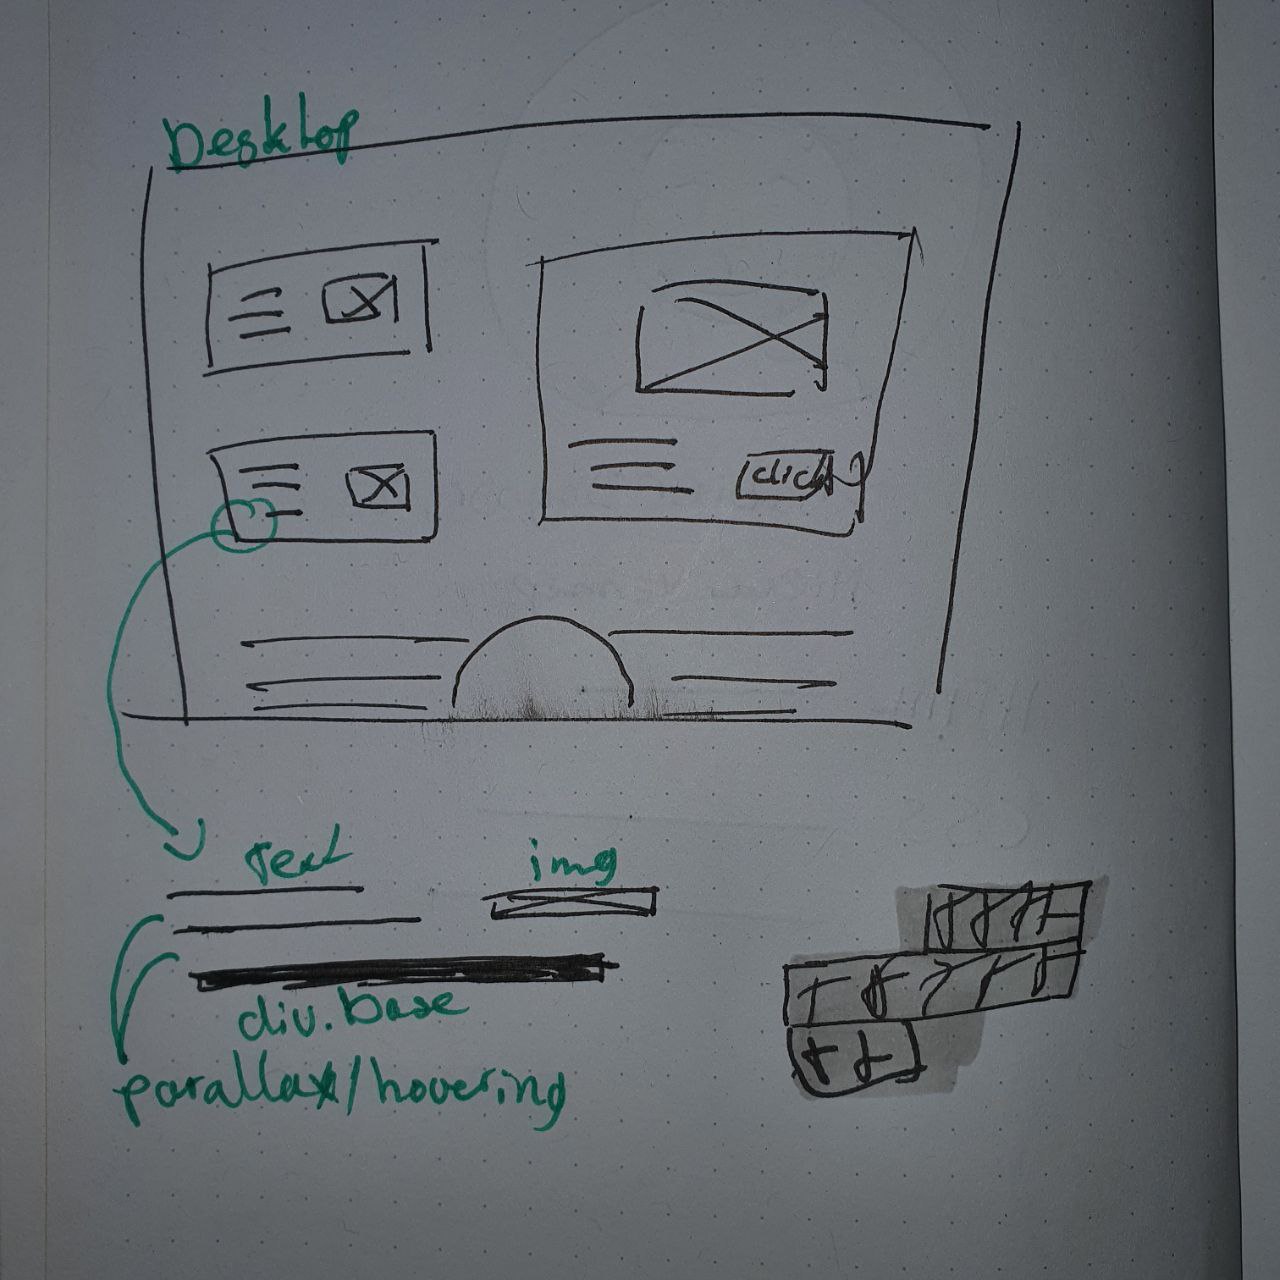 Desktop
click
text
img
div.base
parallax/hovering